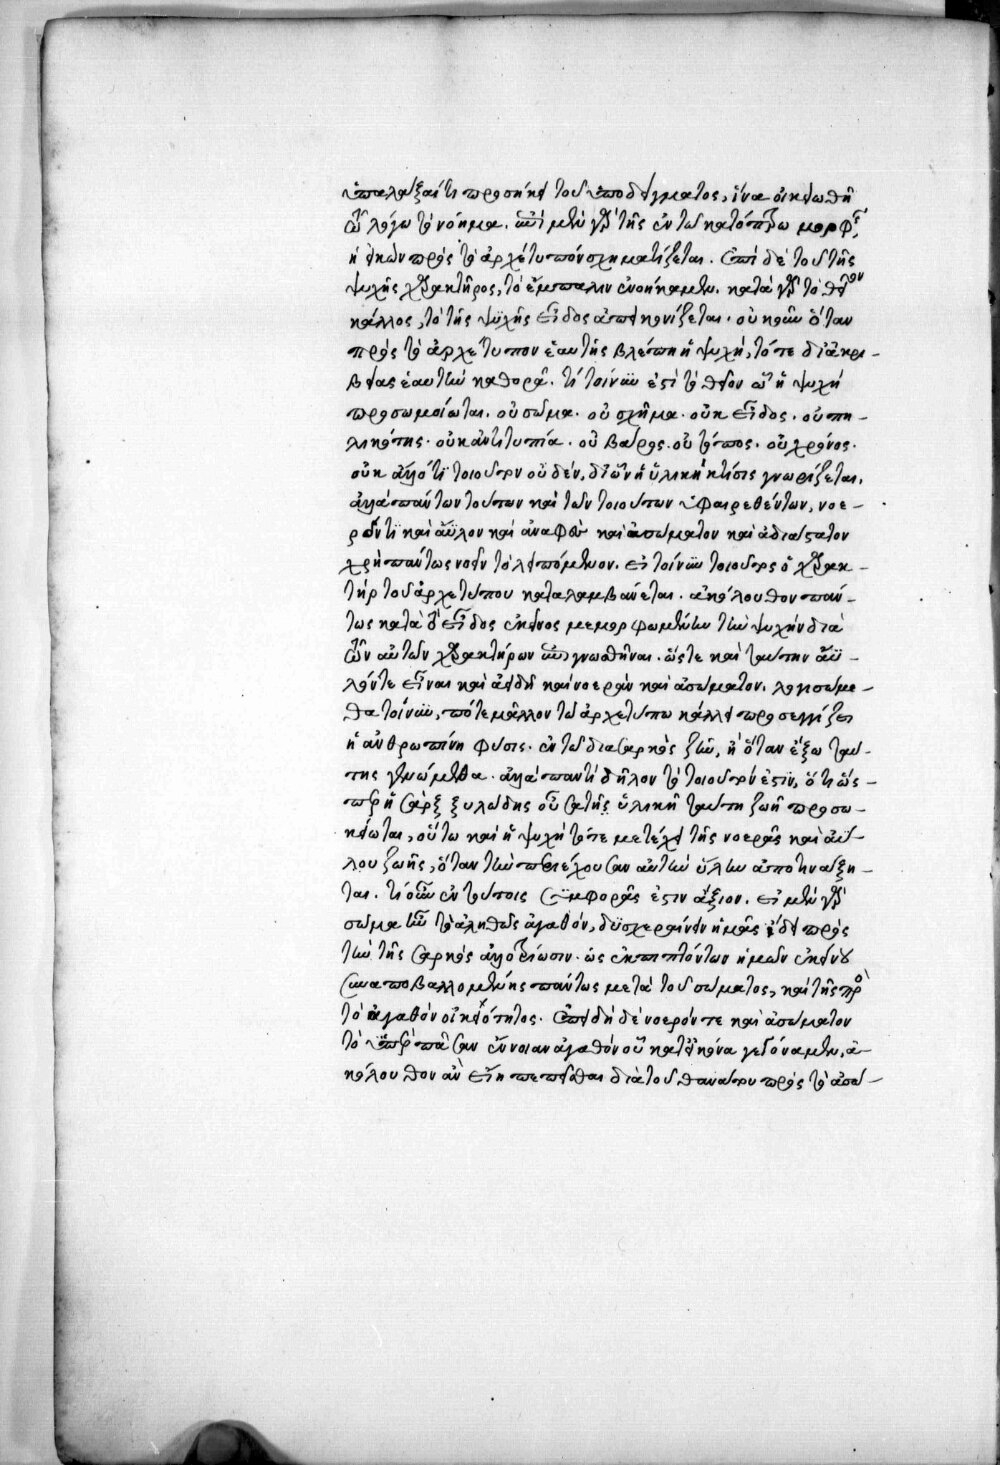 ὑπαλλάξαί τι προσήκει τοῦ ὑποδείγματος, ἵνα οἰκειωθῆ
τῶ λόγω τὸ νόημα. ἐπὶ μὲν γὰρ τῆς ἐν τῶ κατόπτρω μορφῆς,
ἡ εἰκὼν πρὸς τὸ ἀρχέτυπον σχηματίζεται. ἐπὶ δὲ τοῦ τῆς
ψυχῆς χαρακτῆρος, τὸ ἔμπαλιν ἐνοήσαμεν. κατὰ γὰρ τὸ θεῖον
κάλλος, τὸ τῆς ψυχῆς εἶδος ἀπεικονίζεται. οὐκοῦν ὅταν
πρὸς τὸ ἀρχέτυπον ἑαυτῆς βλέπη ἡ ψυχή, τότε δι᾽ ἀκρι-
βείας ἑαυτὴν καθορᾶ. τί τοίνυν ἐστὶ τὸ θεῖον ὧ ἡ ψυχὴ
προσωμοίωται. οὐ σῶμα. οὐ σχῆμα. οὐκ εἶδος. οὐ πη-
λικότης. οὐκ ἀντιτυπία. οὐ βάρος. οὐ τόπος. οὐ χρόνος.
οὐκ ἄλλό τι τοιοῦτον οὐδέν, δι᾽ ὧν ἡ ὑλικὴ κτίσις γνωρίζεται,
ἀλλὰ πάντων τούτων καὶ τῶν τοιούτων ὑφαιρεθέντων, νοε-
ρόν τι καὶ ἄϋλον καὶ ἀναφὲς καὶ ἀσώματον καὶ ἀδιάστατον
χρὴ πάντως νοεῖν τὸ λειπόμενον. εἰ τοίνυν τοιοῦτος ὁ χαρακ-
τὴρ τοῦ ἀρχετύπου καταλαμβάνεται. ἀκόλουθον πάν-
τως κατὰ τὸ εἶδος ἐκεῖνος μεμορφωμένην τὴν ψυχὴν διὰ
τῶν αὐτῶν χαρακτήρων ἐπιγνωσθῆναι. ὥστε καὶ ταύτην ἄϋ-
λόν τε εἶναι καὶ ἀειδῆ καὶ νοερὰν καὶ ἀσώματον. λογισώμε-
θα τοίνυν, πότε μᾶλλον τῶ ἀρχετύπω κάλλει προσεγγίζει
ἡ ἀνθρωπίνη φύσις. ἐν τῶ διὰ σαρκὸς ζῆν, ἢ ὅταν ἔξω ταύ-
της γενώμεθα. ἀλλὰ παντὶ δῆλον τὸ τοιοῦτόν ἐστιν, ὅτι ὥς-
περ ἡ σὰρξ ξυλώδης οὖσα τῆς ὑλικῆ ταύτη ζωῆ προσω-
κείωται, οὕτω καὶ ἡ ψυχὴ τότε μετέχει τῆς νοερᾶς καὶ ἀΰ-
λου ζωῆς, ὅταν τὴν περιέχουσαν αὐτὴν ὕλην ἀποτινάξη-
ται. τί οὖν ἐν τούτοις συμφορᾶς ἐστιν ἄξιον. εἰ μὲν γὰρ
σῶμα ἦν τὸ ἀληθῶς ἀγαθόν, δυσχεραίνειν ἡμᾶς ἔδει πρὸς
τὴν τῆς σαρκὸς ἀλλοτρίωσιν. ὡς ἐκπιπτόντων ἡμῶν ἐκείνου
συναποβαλλομένης πάντως μετὰ τοῦ σώματος, καὶ τῆς πρὸς
τὸ ἀγαθὸν οἰκειότητος. ἐπειδὴ δὲ νοερόν τε καὶ ἀσώματον
τὸ ὑπὲρ πᾶσαν ἔννοιαν ἀγαθὸν οὗ κατ᾽ εἰκόνα γεγόναμεν, ἀ-
κόλουθον ἂν εἴη πεπεῖσθαι διὰ τοῦ θανάτου πρὸς τὸ ἀσώ-